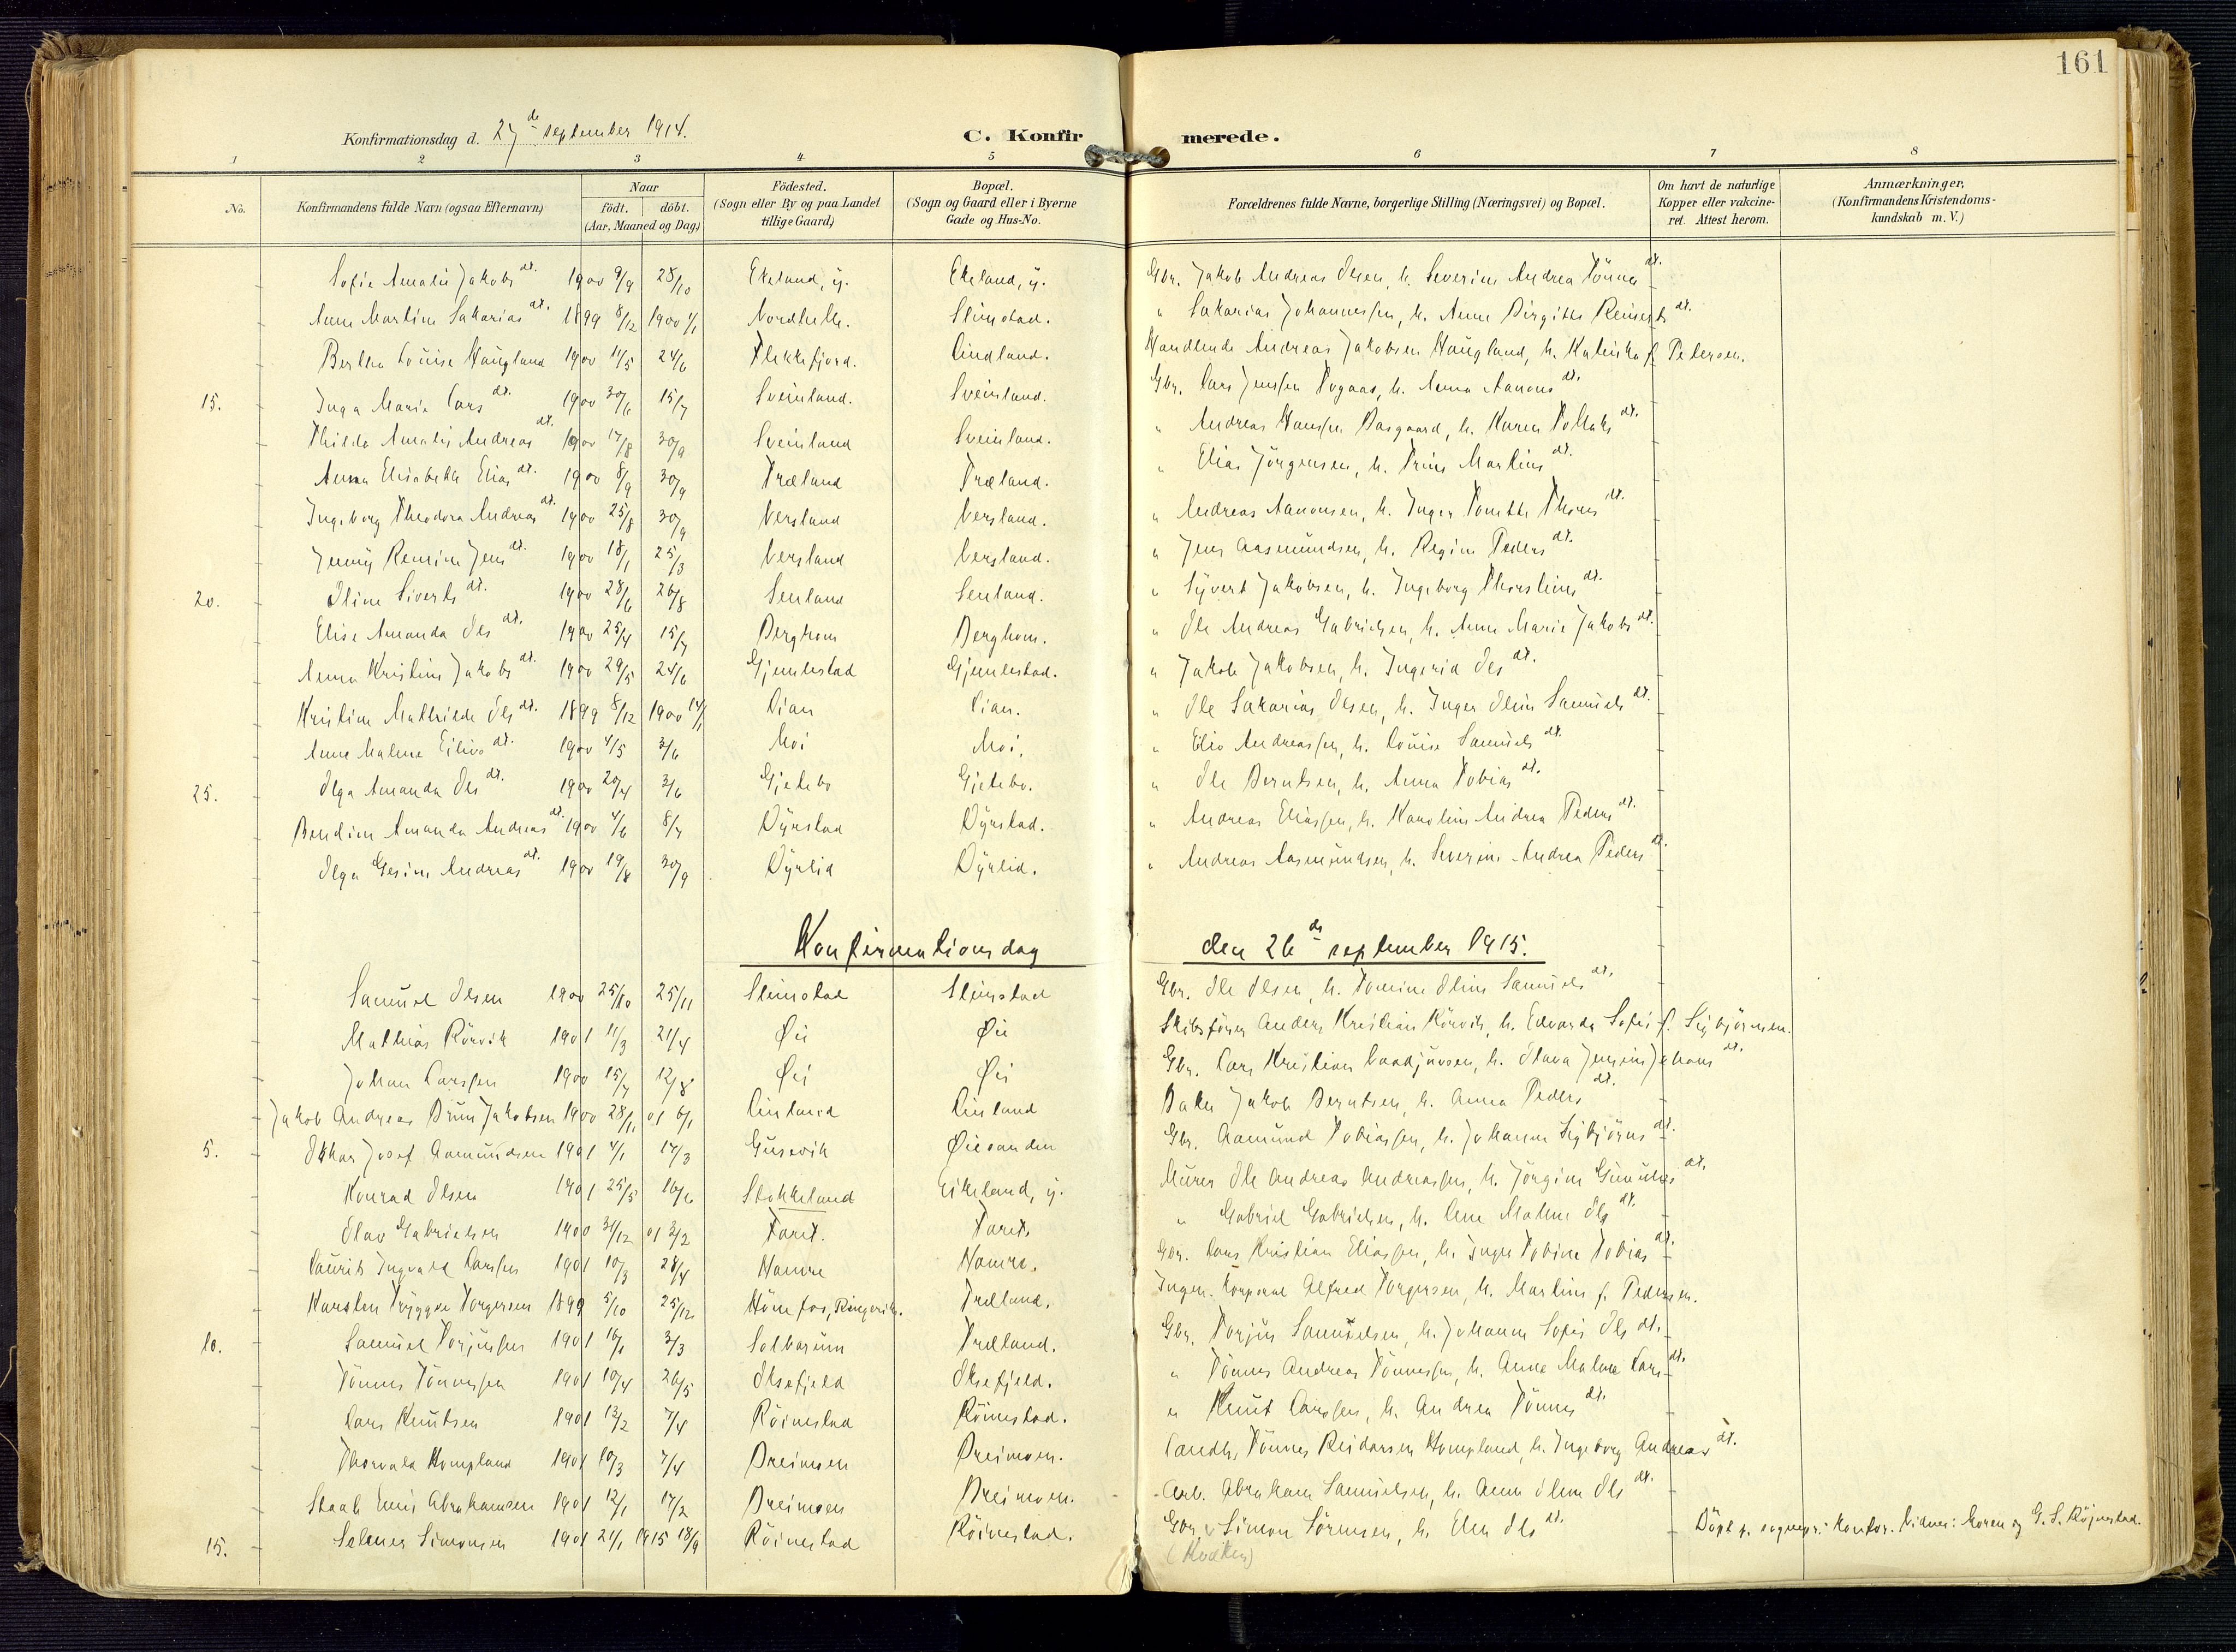 161
Konfirmationsdag d. 27de september 1914.
C. Konfirmerede.
1 2 3 4 5 6 7 8
No.
Konfirmandens fulde Navn (ogsaa Efternavn)
Naar
födt. döbt.
(Aar, Maaned og Dag)
Födested.
(Sogn eller By og paa Landet
tillige Gaard)
Bopæl.
(Sogn og Gaard eller i Byerne
Gade og Hus-No.
Forældrenes fulde Navne, borgerlige Stilling (Næringsvei) og Bopæl.
Om havt de naturlige
Kopper eller vakcine-
ret. Attest herom.
Anmærkninger,
(Konfirmandens Kristendoms-
kundskab m. V.)
Sofie Amalie Jakobsdt. 1900 9/9 28/10 Ekeland, y. Ekeland, y. Gbr. Jakob Andreas Olsen, h. Severine Andrea Tönnesdt.
Anne Martine Sakariasdt. 1899 8/12 1900 1/1 Sleimstad. " Sakarias Johannessen, h. Anne Birgitte Reinertsdt.
Bertha Louise Haugland 1900 11/5 24/6 Flekkefjord. Lindland. Handlende Andreas Jakobsen Haugland, h. f. Petersen.
15. Inga Marie Larsdt. 1900 30/6 15/7 Sveinland. Sveinland. Gbr. Lars Jenssen, h. Anna Aanonsdt.
Thilda Amalie Andreasdt. 1900 17/8 30/9 Sveinland Sveinland. " Andreas Hanssen, h. Karen
Anna Elisabeth Eliasdt. 1900 8/9 30/9 Træland Træland. " Elias Jörgensen, h. Trine Martinsdt.
Ingeborg Theodora Andreasdt. 1900 25/8 30/9 Versland Versland. " Andreas Aanonsen, h. Inger Tonette
Jenny Remine Jensdt. 1900 18/1 25/3 Versland Versland. " Jens Aasmundsen, h. Regine Pedersdt.
20. Oline Sivertsdt. 1900 28/6 26/8 Senland Senland. " Syvert Jakobsen, h. Ingeborg
Elise Amanda Olsdt. 1900 25/4 15/7 Berghom Berghom. " Ole Andreas Gabrielsen, h. Anne Marie Jakobsdt.
Anna Kristine Jakobsdt. 1900 29/5 24/6 Gjemlestad Gjemlestad. " Jakob Jakobsen, h. Ingerid Olsdt.
Kristine Mathilde Olsdt. 1899 8/12 1900 14/1 Lian Lian. " Ole Sakarias Olsen, h. Inger Oline Samuelsdt.
Anne Malene Eilivsdt. 1900 4/5 3/6 Moi Moi. " Eiliv Andreassen, h. Louise Samuelsdt.
25. Olga Amanda Olsdt. 1900 20/4 3/6 Gjetebo Gjetebo. " Ole Berntsen, h. Anna Tobiasdt.
Bendine Amanda Andreasdt. 1900 4/6 8/7 Dyrstad Dyrstad. " Andreas Eliassen, h. Karoline Andrea Pedersdt.
Olga Gesine Andreasdt. 1900 19/8 30/9 Dyrlid Dyrlid. " Andreas Aasmundsen, h. Severine Andrea Pedersdt.
Konfirmationsdag den 26de september 1915.
Samuel Olsen 1900 25/10 25/11 Sleimstad Sleimstad Gbr. Ole Olsen, h. Tomine Oline Samuelsdt.
Mathias Rörvik 1901 11/3 21/4 Øie Øie Skibsförer Anders Kristian Rörvik, h. Edvarda Sofie f. Sigbjörnsen.
Johan Larssen 1900 15/7 12/8 Øie Øie Gbr. Lars Kristian, h. Olava
Jakob Andreas Jakobsen 1900 28/11 01 6/1 Linland Linland Baker Jakob Berntsen, h. Anna Pedersdt.
5. Oskar Josef Aamundsen 1901 4/1 17/3 Gusevik Øiesanden Gbr. Aamund Tobiassen, h. Johanne Sigbjörnsdt.
Konrad Olsen 1901 25/5 16/6 Stokkeland Eikeland, y. Murer Ole Andreas Andreassen, h. Jörgine Gunuldsdt.
Olav Gabrielsen 1900 31/12 01 3/2 Faret. Faret. " Gabriel Gabrielsen, h. Ane Malene Olsdt.
Laurits Ingvald Larssen 1901 10/3 28/4 Hamre Hamre. Gbr. Lars Kristian Eliassen, h. Inger Tobine Tobiasdt.
Karsten Trygve Torgersen 1899 5/10 25/12 Hönefos, Ringerike. Træland. Ingen. korporal Alfred Torgersen, h. Martine f. Pedersen.
10. Samuel Torjussen 1901 3/3 Solbarum Træland. Gbr. Torjus Samuelsen, h. Johanne Sofie Olsdt.
Tönnes Tönnessen 1901 10/4 26/5 Oksefjeld Oksefjeld. " Tönnes Andreas Tönnessen, h. Anne Malene Larsdt.
Lars Knutsen 1901 13/2 7/4 Röinestad Röinestad. " Knut Larssen, h. Andrea Tönnesdt.
Thorvald Kumpland 1901 10/3 7/4 Dreimoen Dreimoen. Landh. Tönnes Reidarsen Kumpland, h. Ingeborg Andreasdt.
Emil Abrahamsen 1901 12/1 17/2 Dreimoen Dreimoen. Arb. Abraham Samuelsen, h. Anne Oline Olsdt.
15. Selmer Simonsen 1901 21/1 1915 18/9 Röinestad Röinestad. Gbr. Simon Sörensen, h. Elen Olsdt. Döpt p. sognepr.'s kontor. Vidner: Moren og G. S. Röjnestad.
(Kvæker)